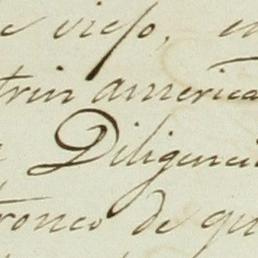 viejo, en
trin america
Diligenci
tronco de qu